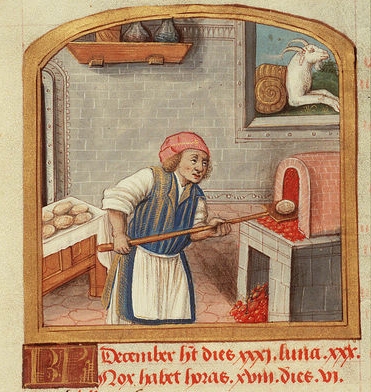 KL December ht dies xxxj. luna. xxx.
Nox habet horas. xviii. dies. vi.